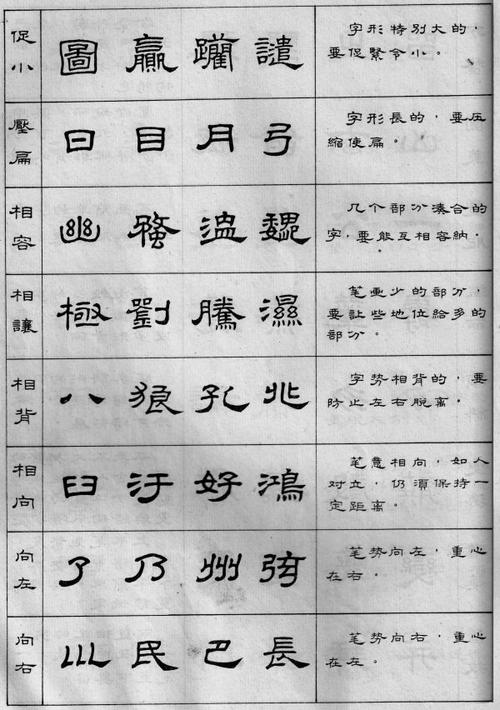 促小
圖 贏 譴
字形特别大的，
要促緊令小。
壓扁
曰 目 月 弓
字形長的，要压
縮使扁。
相容
幽 魏
几个部分凑合的
字，要能互相容納。
相讓
極 劉 騰 濕
笔画少的部分，
要让些地位给多的
部分。
相背
八 狼 孔
字势相背的，要
防止左右脱离。
相向
臼 汙 好 鴻
笔意相向，如人
对立，仍須保持一
定距离。
向左
了 乃 州 弦
笔势向左，重心
在右。
向右
民 巴 長
笔势向右，重心
在左。